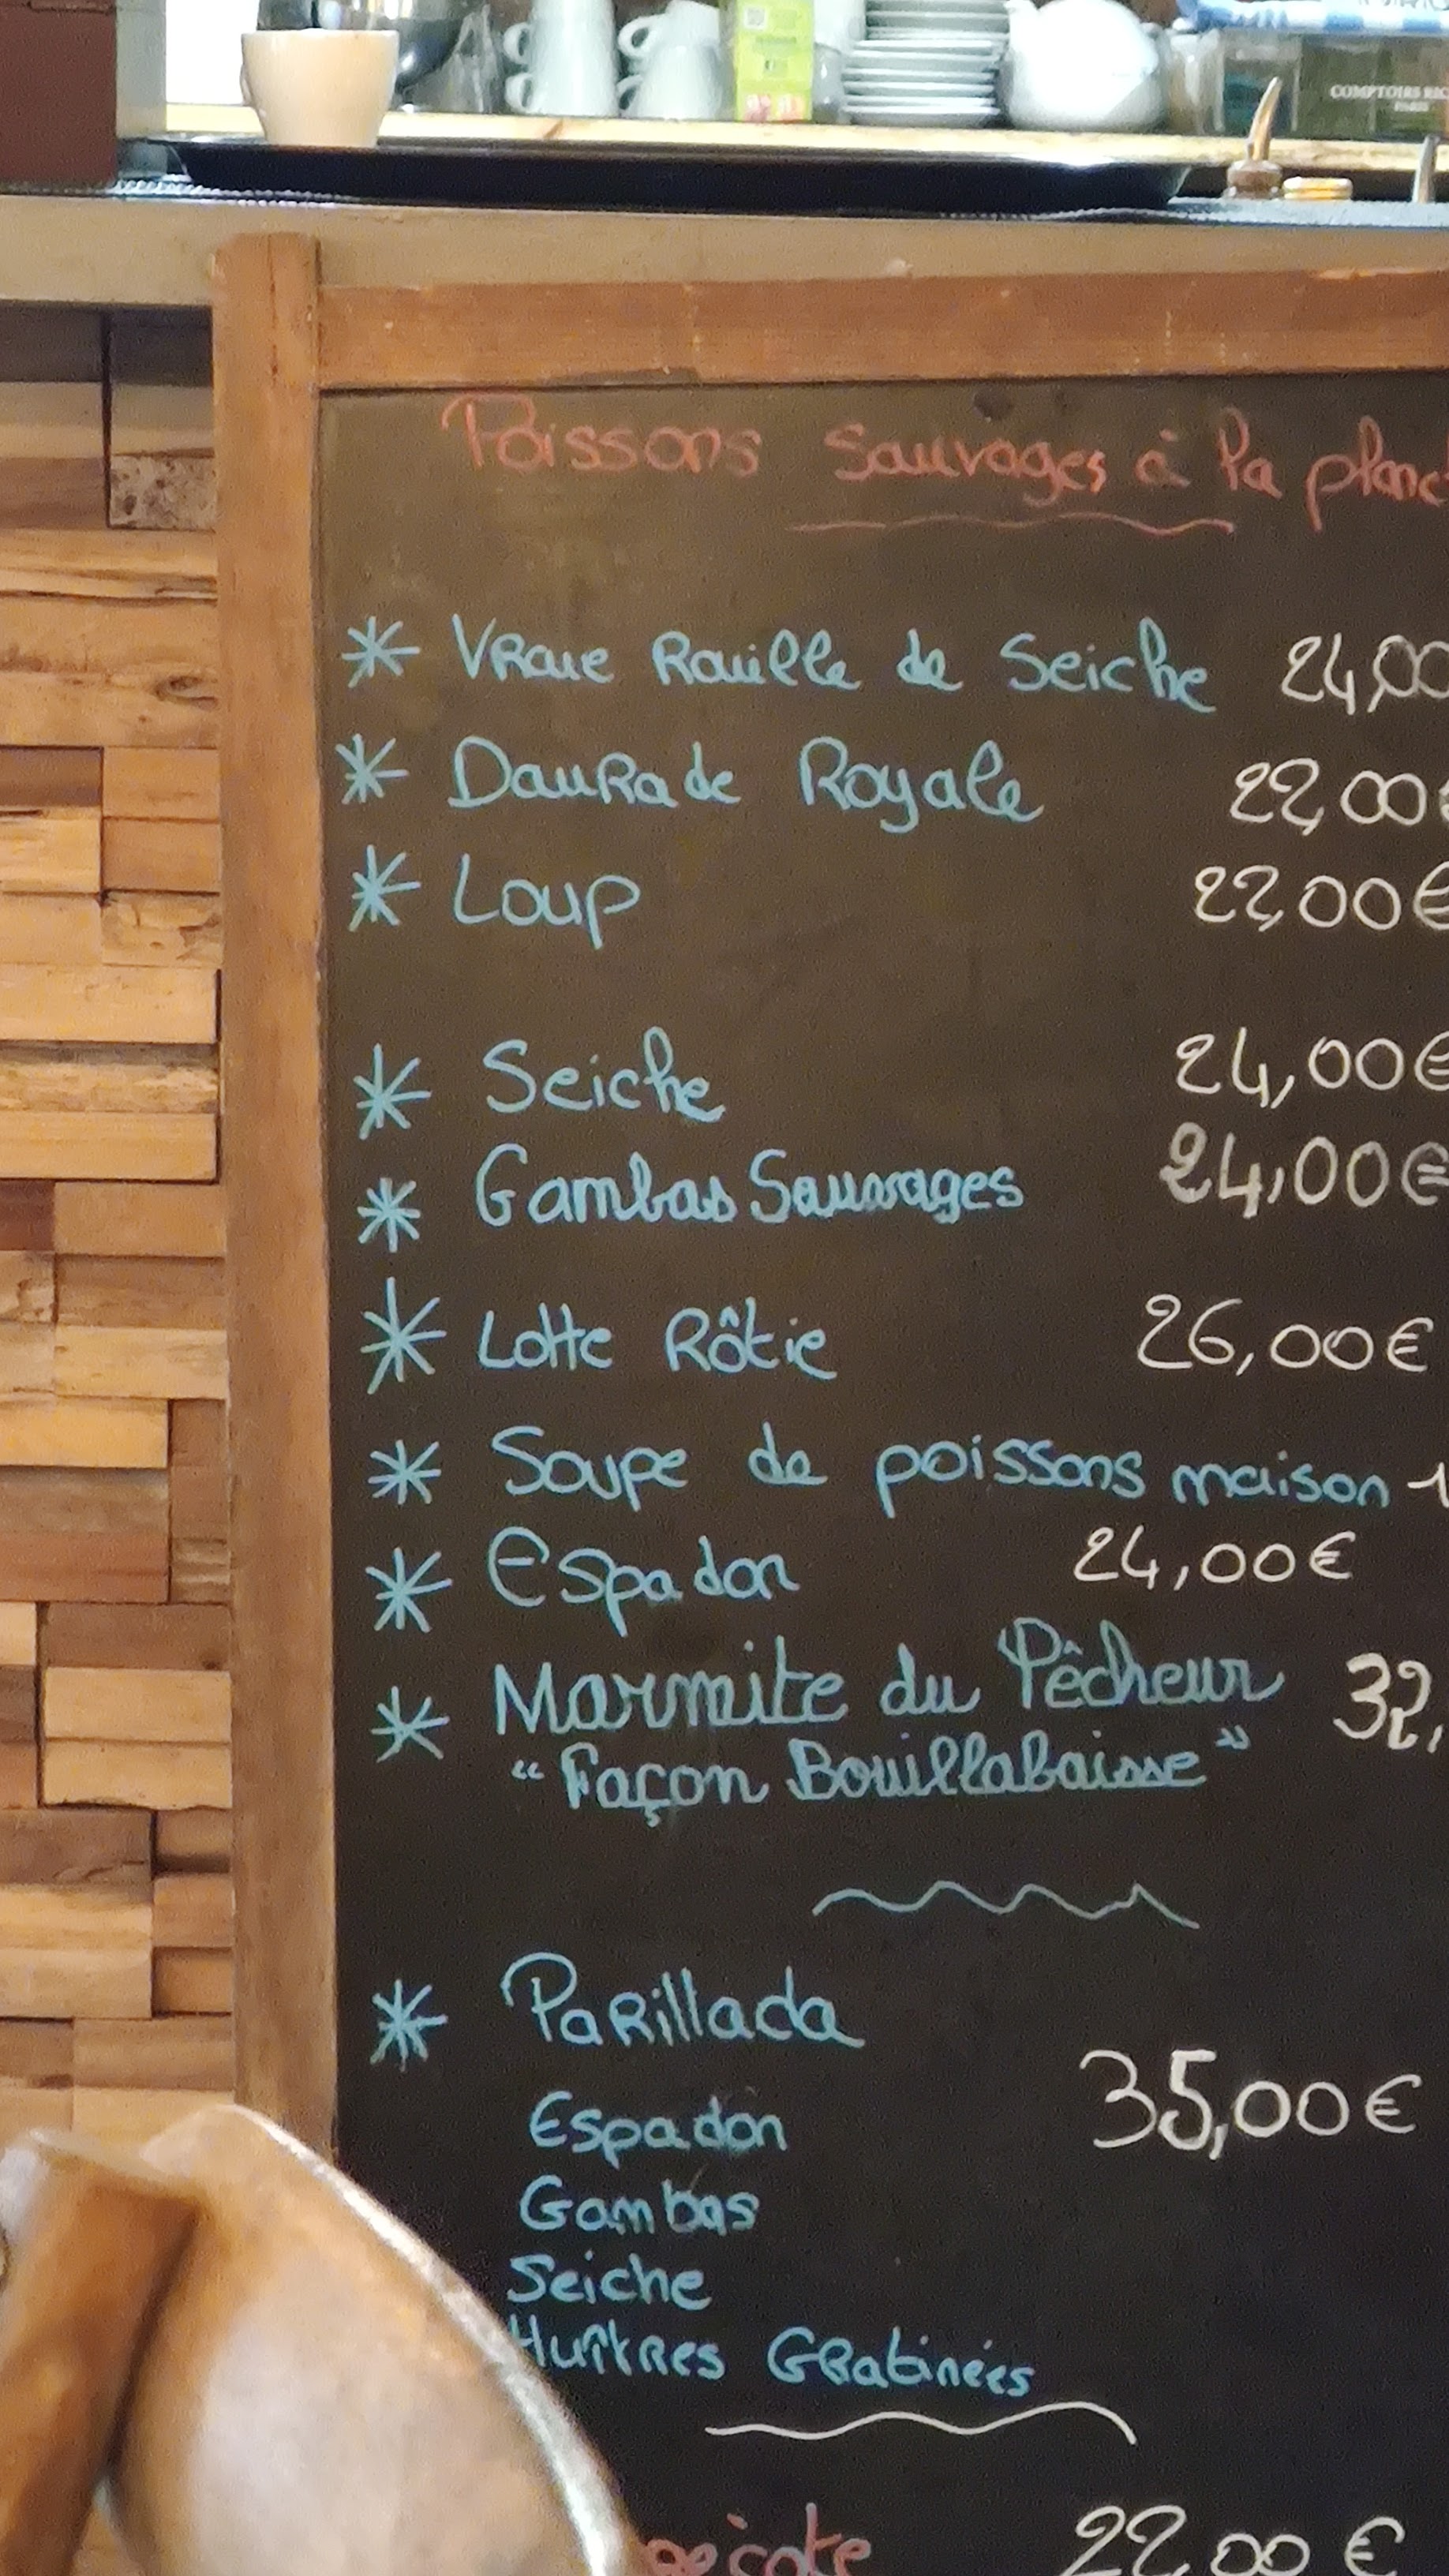 COMPTOIRS RIC
PARIS
Poissons Sauvages à la planc
* Vraie Rouille de Seiche 24,00
* Daurade Royale 22,00€
* Loup 22,00€
* Seiche 24,00€
* Gambas Sauvages 24,00€
* Lotte Rôtie 26,00€
* Soupe de poissons maison 1
* Espadon 24,00€
* Marmite du Pêcheur 32,
“Façon Bouillabaisse”
* Parillada
Espadon 35,00€
Gambas
Seiche
Huîtres Gratinées
22,00 €